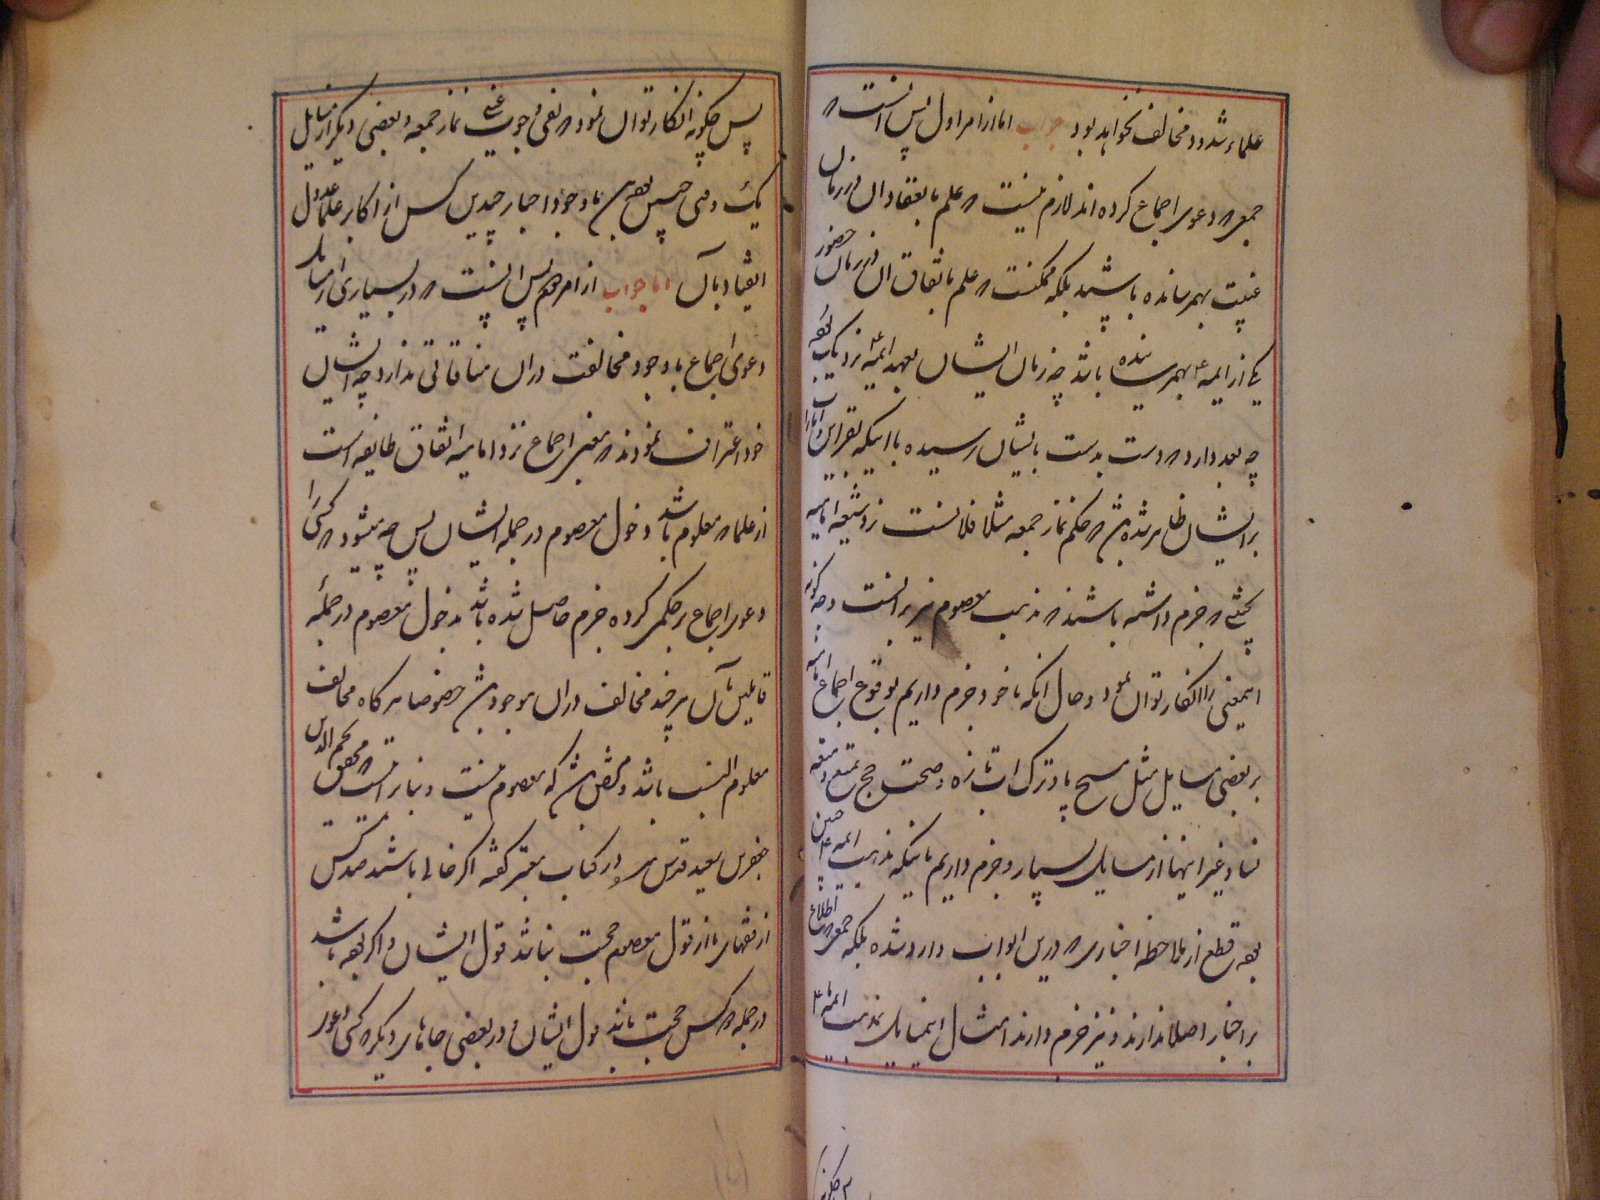 علماء شد و مخالف نخواهد بود جواب اما از امر اول پس اینست که
جمعی که دعوی اجماع کرده اند لازم نیست که علم بانعقاد آن در زمان
غیبت بهمرسانده باشند بلکه ممکنست که علم باتفاق آن در زمان حضور
یکی از ائمه ع بهمرسانیده باشند چه زمان ایشان بعهد ائمه ع نزدیک بوده
چه بعد دارد که دست بدست بایشان رسیده یا اینکه بقراین و امارات
بر ایشان ظاهر شده باشد که حکم نماز جمعه مثلا فلانست نزد شیعه امامیه
بحیثی که جزم داشته باشند که مذهب معصوم نیز بر اینست و چه گونه
اینمعنی را انکار توان نمود و حال آنکه ما خود جزم داریم بوقوع اجماع امامیه
بر بعضی مسایل مثل مسح پا و ترک و صحت حج تمتع و متعه
نساء و غیر اینها از مسایل بسیار و جزم داریم باینکه مذهب ائمه ع چنین
بوده قطع از ملاحظه اخباری که درین ابواب وارد شده بلکه جمعی که اطلاع
بر اخبار اصلا ندارند نیز جزم دارند امثال این مسایل مذهب ائمه ما ع
چگونه
پس چگونه انکار توان نمود که نفی وجوب عینی نماز جمعه و بعضی دیگر از مسایل
یک وقتی چنین بوده باشد با وجود اخبار چندین کس از اکابر علماء عدول
انعقاد بآن اما جواب از امر دوم پس اینست که در بسیاری از مسایل
دعوی اجماع با وجود مخالفت در آن منافاتی ندارد چه ایشان
خود اعتراف نمودند که معنی اجماع نزد امامیه اتفاق طایفه است
از علما که معلوم باشد دخول معصوم در جمله ایشان پس چه میشود که کسی را
دعوی اجماع بر حکمی کرده جزم حاصل شده باشد بدخول معصوم در جمله
قایلین بآن هر چند مخالف در آن موجود باشد خصوصا هر گاه مخالف
معلوم النسب باشد و مشخص باشد که معصوم نیست و بنابر اینست که محقق نجم الدین
جعفر بن سعید قدس سره در کتاب معتبر گفته اگر خالی باشند صد کس
از فقهای ما از قول معصوم حجت نباشد قول ایشان و اگر بوده باشد
در جمله دو کس حجت باشد قول ایشان و در بعضی جاهای دیگر که کسی دعوی